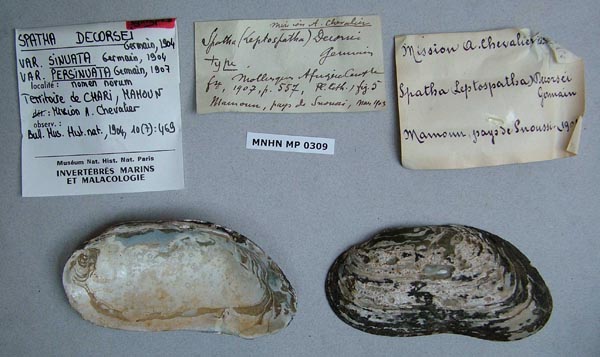 SPATHA DECORSEI
Germain, 1904
VAR. SINUATA Germain, 1904
VAR. PERSINUATA Germain, 1907
localité : nomen novum
Territoire de CHARI, MAHOUN
Mission A. Chevalier
observ. :
Bul. Mus. Hist. nat., 1904, 10(7): 469
Muséum Nat. Hist. Nat. Paris
INVERTÉBRÉS MARINS
ET MALACOLOGIE
Mission A. Chevalier
Spatha (Leptospatha) Decorsei
Germain
Type
Mollusques Afrique Centrale
fse, 1907, p. 557, fig 5
Mamoun, pays de Snoussi, 1903
MNHN MP 0309
Mission A. Chevalier
Spatha (Leptospatha) Decorsei
Germain
Mamoun, pays de Snoussi